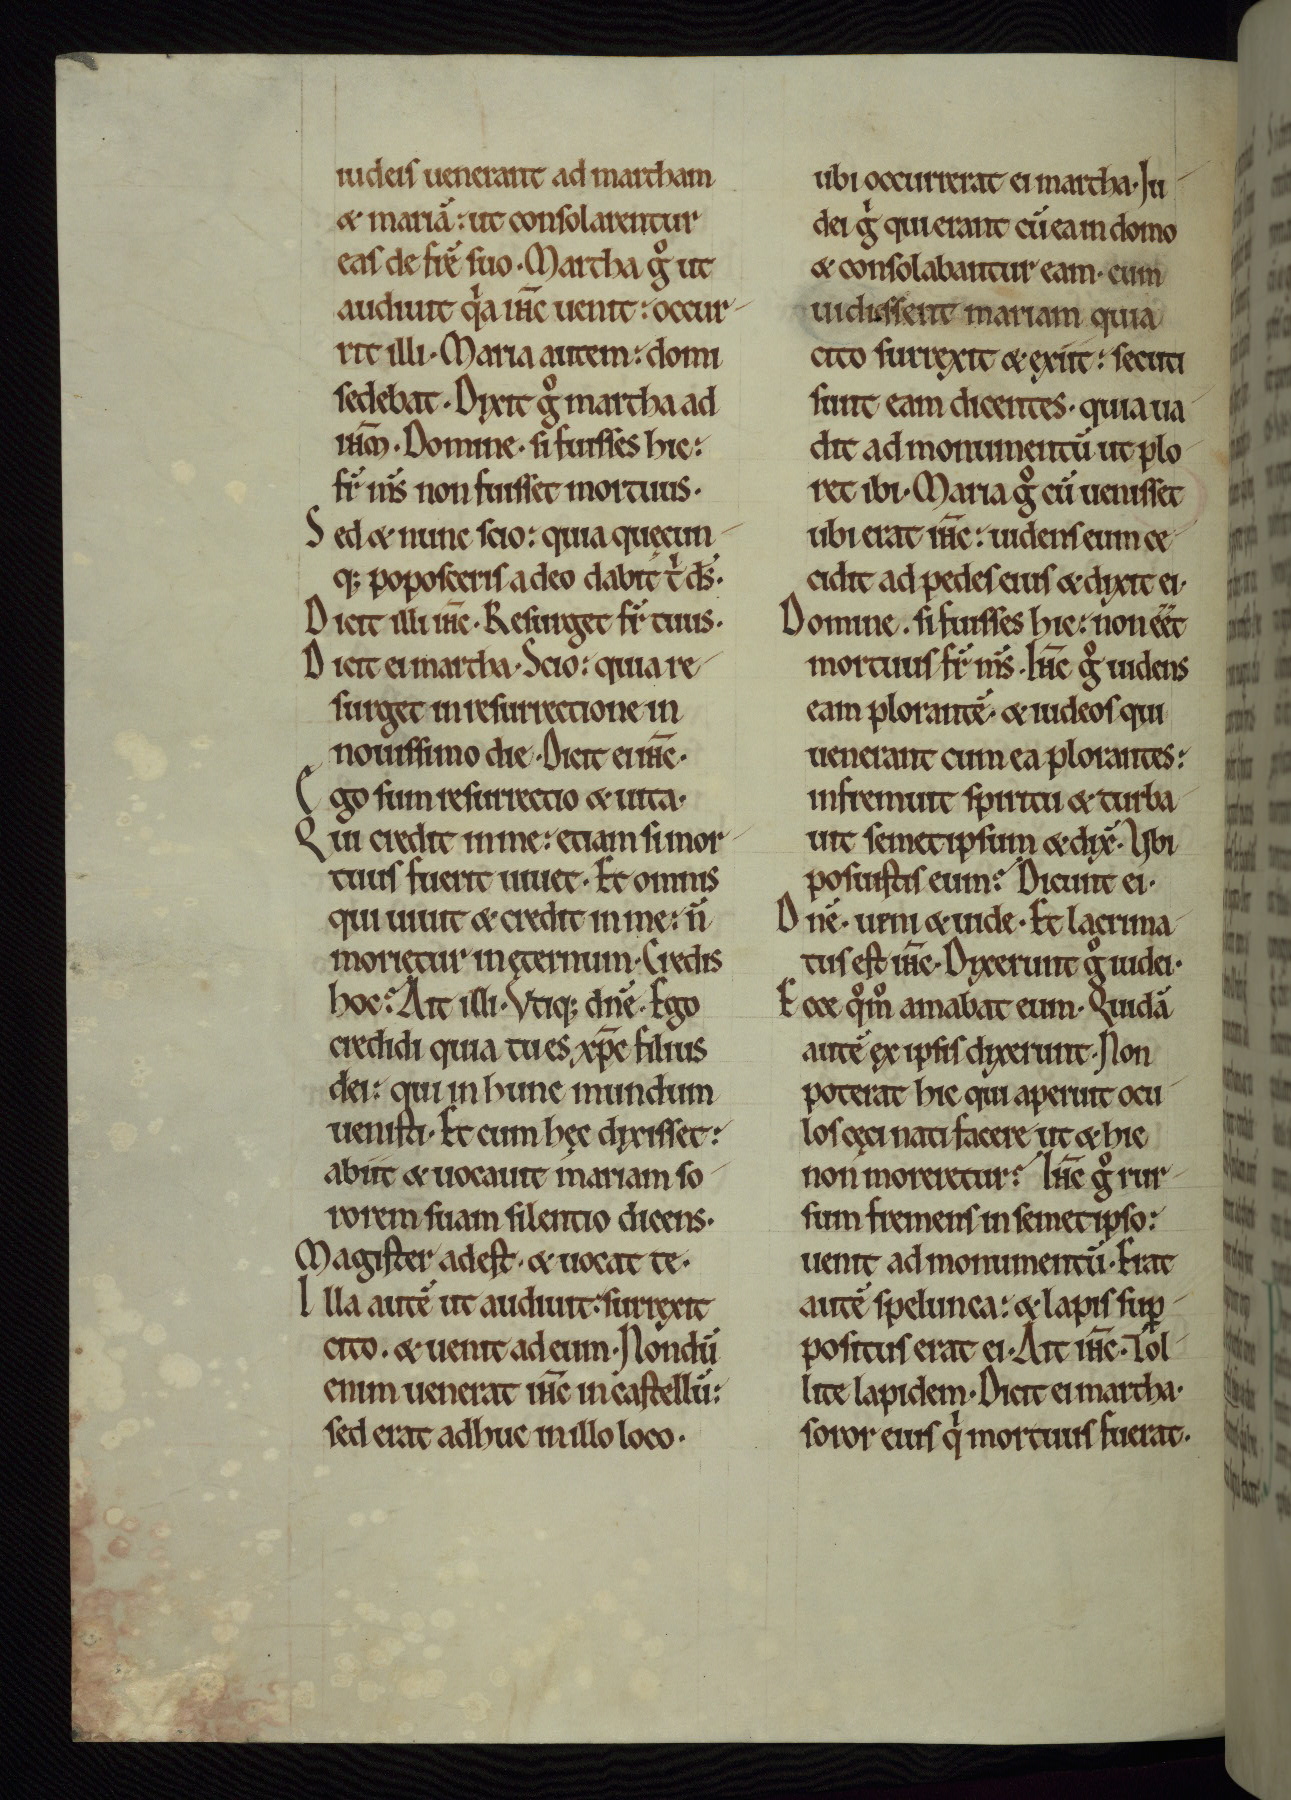 iudeis uenerant ad martham
& mariā: ut consolarentur
eas de fr̄e suo. Martha gͦ ut
audiuit qͥa ih̄c uenit: occur
rit illi. Maria autem: domi
sedebat. Dixit gͦ martha ad
ih̄m. Domine. si fuisses hic:
fr̄ m̄s non fuisset mortuus.
Sed & nunc scio: quia quęcun
q; poposceris a deo dabit tͥ d̄s.
Dicit illi ih̄c. Resurget fr̄ tuus.
Dicit ei martha. Scio: quia re
surget in resurrectione in
nouissimo die. Dicit ei ih̄c.
Ego sum resurrectio & uita.
Qui credit in me: etiam si mor
tuus fuerit uiuet. Et omnis
qui uiuit & credit in me: n̄
morietur in ęternum. Credis
hoc? Ait illi. Vtiq; dn̄e. Ego
credidi quia tu es xp̄c filius
dei: qui in hunc mundum
uenisti. Et cum hęc dixisset:
abiit & uocauit mariam so
rorem suam silentio dicens.
Magister adest. & uocat te.
Illa autē ut audiuit: surrexit
cito. & uenit ad eum. Nondū
enim uenerat ih̄c in castellū:
sed erat adhuc in illo loco.
ubi occurrerat ei martha. Iu
dei gͥ qui erant cū ea in domo
& consolabantur eam. cum
uidissent mariam quia
cito surrexit & exiit: secuti
sunt eam dicentes. quia ua
dit ad monumentū ut plo
ret ibi. Maria gͦ cū uenisset
ubi erat ih̄c: uidens eum ce
cidit ad pedes eius & dixit ei.
Domine. si fuisses hic: non eēt
mortuus fr̄ m̄s. Ih̄c gͦ uidens
eam plorantē. & iudeos qui
uenerant cum ea plorantes:
infremuit spiritu & turba
uit semetipsum & dix̄. Vbi
posuistis eum? Dicunt ei.
Dn̄e. ueni & uide. Et lacrima
tus est ih̄c. Dixerunt gͦ iudei.
Ecce qͦmͦ amabat eum. Quidā
autē ex ipsis dixerunt. Non
poterat hic qui aperuit ocu
los cęci nati facere ut & hic
non moreretur? Ih̄c gͦ rur
sum fremens in semetipso:
uenit ad monumentū. Erat
autē spelunca: & lapis suꝑ
positus erat ei. Ait ih̄c. Tol
lite lapidem. Dicit ei martha.
soror eius qͥ mortuus fuerat.